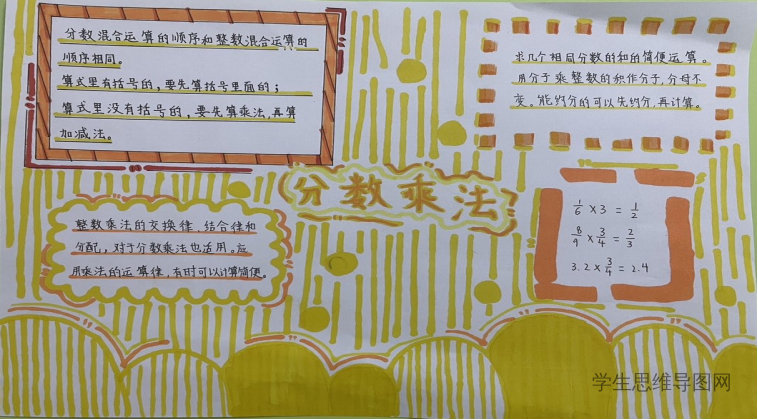 分数混合运算的顺序和整数混合运算的
顺序相同。
算式里有括号的，要先算括号里面的；
算式里没有括号的，要先算乘法，再算
加减法。
求几个相同分数的和的简便运算。
用分子乘整数的积作分子，分母不
变。能约分的可以先约分，再计算。
分数乘法
整数乘法的交换律、结合律和
分配，对于分数乘法也适用。应
用乘法的运算律，有时可以计算简便。
1/6 × 3 = 1/2
8/9 × 3/4 = 2/3
3.2 × 3/4 = 2.4
学生思维导图网